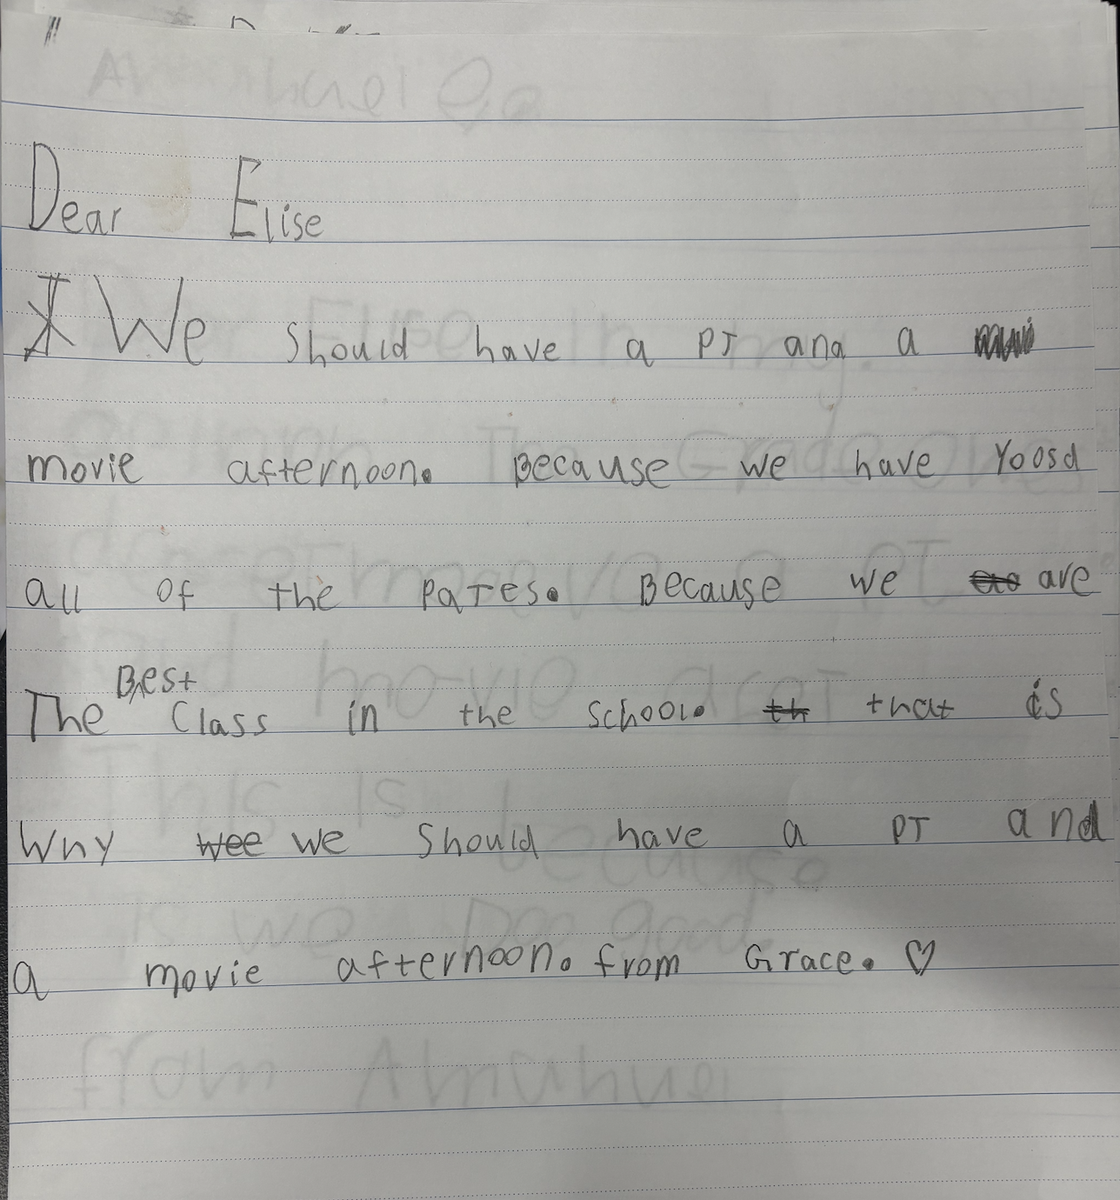 Dear Elise
We should have a PJ and a
movie afternoon. Because we have Yoosd
all of the Pates. Because we are
The Best Class in the school. that is
Why we should have a PJ and
a movie afternoon. from Grace. ♡